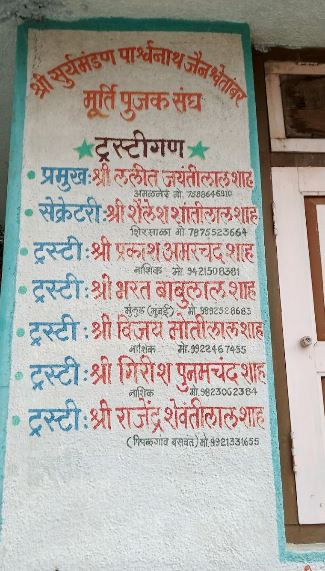 श्री सुर्यमंडण पार्श्वनाथ जैन श्वेतांबर
मूर्ति पुजक संघ
★ ट्रस्टीगण ★
• प्रमुख : श्री ललीत जयंतीलाल शाह
अमळनेर मो. 7588646910
• सेक्रेटरी : श्री शैलेश शांतीलाल शाह
शिरसाळा मो. 7875523664
• ट्रस्टी : श्री प्रकाश अमरचद शाह
नाशिक मो. 9421508381
• ट्रस्टी : श्री भरत बाबुलाल शाह
मुलुंड (मुंबई) मो. 9892528683
• ट्रस्टी : श्री विजय मोतीलाल शाह
नाशिक मो. 9922467455
• ट्रस्टी : श्री गिरीश पुनमचंद शाह
नाशिक मो. 9823062384
• ट्रस्टी : श्री राजेंद्र शेवंतीलाल शाह
(पिंपळगाव बसवंत) मो. 9921331655